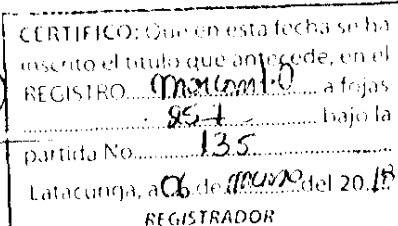 CERTIFICO: Que en esta fecha se ha
inscrito el titulo que antecede, en el
REGISTRO Mercantil a fojas
bajo la
partida No. 135
Latacunga, a 06 de del 20.18
REGISTRADOR